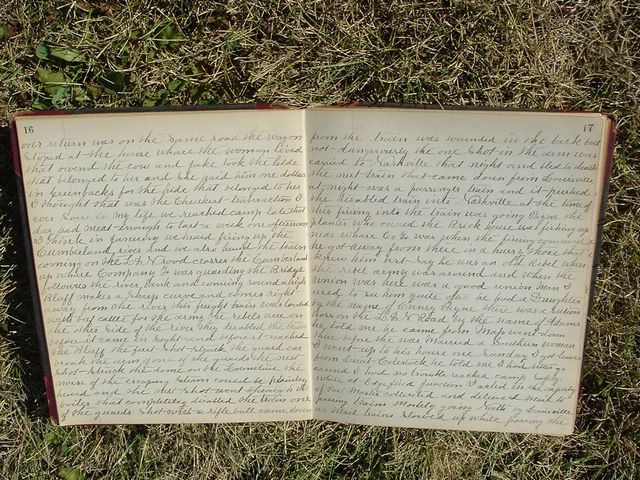 16
our return was on the same road the wagon
stoped at the house where the woman lived
that owned the cow and Jake took the hide
that belonged to her and she paid him one dollar
in greenbacks for the hide that belonged to her
I thought that was the cheekest transaction I
ever saw in my life we reached camp late that
day had meat enough to last a week one afternoon
I think in January we heard firing up the
Cumberland river and we also heard the train
coming on the L & N road crosses the Cumberland
where Company was guarding the Bridge
followes the river bank and coming around a high
Bluff makes a sharp curve and comes right
away from the river this freight train was loaded
with cattle for the army the rebels were on
the other side of the river they disabled the train
before it came in sight and before it reached
the Bluff the first shot struck the
one of the guards the next
shot struck the dome on the
noise of the escaping steam could be plainly
heard and the last shot went through the
boiler that completely disabled the train one
of the guards shot with a rifle ball came down
17
from the train was wounded in the back but
not dangerously the one shot in the arm was
caried to Nashville that night and bled to death
the next train that came down from Louisville
at night was a passenger train and it pushed
the disabled train into Nashville at the time of
this firing into the train was going Payne the
planter who owned the Brick house was fishing up
near where Co was when the firing commenced
he got away from there in a hurry those that
knew him best say he was an old Rebel when
the rebel army was around and when the
union was here was a good union man I
used to see him quite often he had a Daughter
by the name of Payne there was a Section
Boss on the L & N Road by the name of
he told me he came from Mass some
time before the war Married a Southern woman
I went up to his house one Sunday I got leave
from he told me I had better go
armed I had no trouble reached camp safely
while at Edgefield Junction I acted in the capacity
of Post Master collected and delived mail to
passing trains Mostly going North to Louisville
as mail trains slowed up while passing the